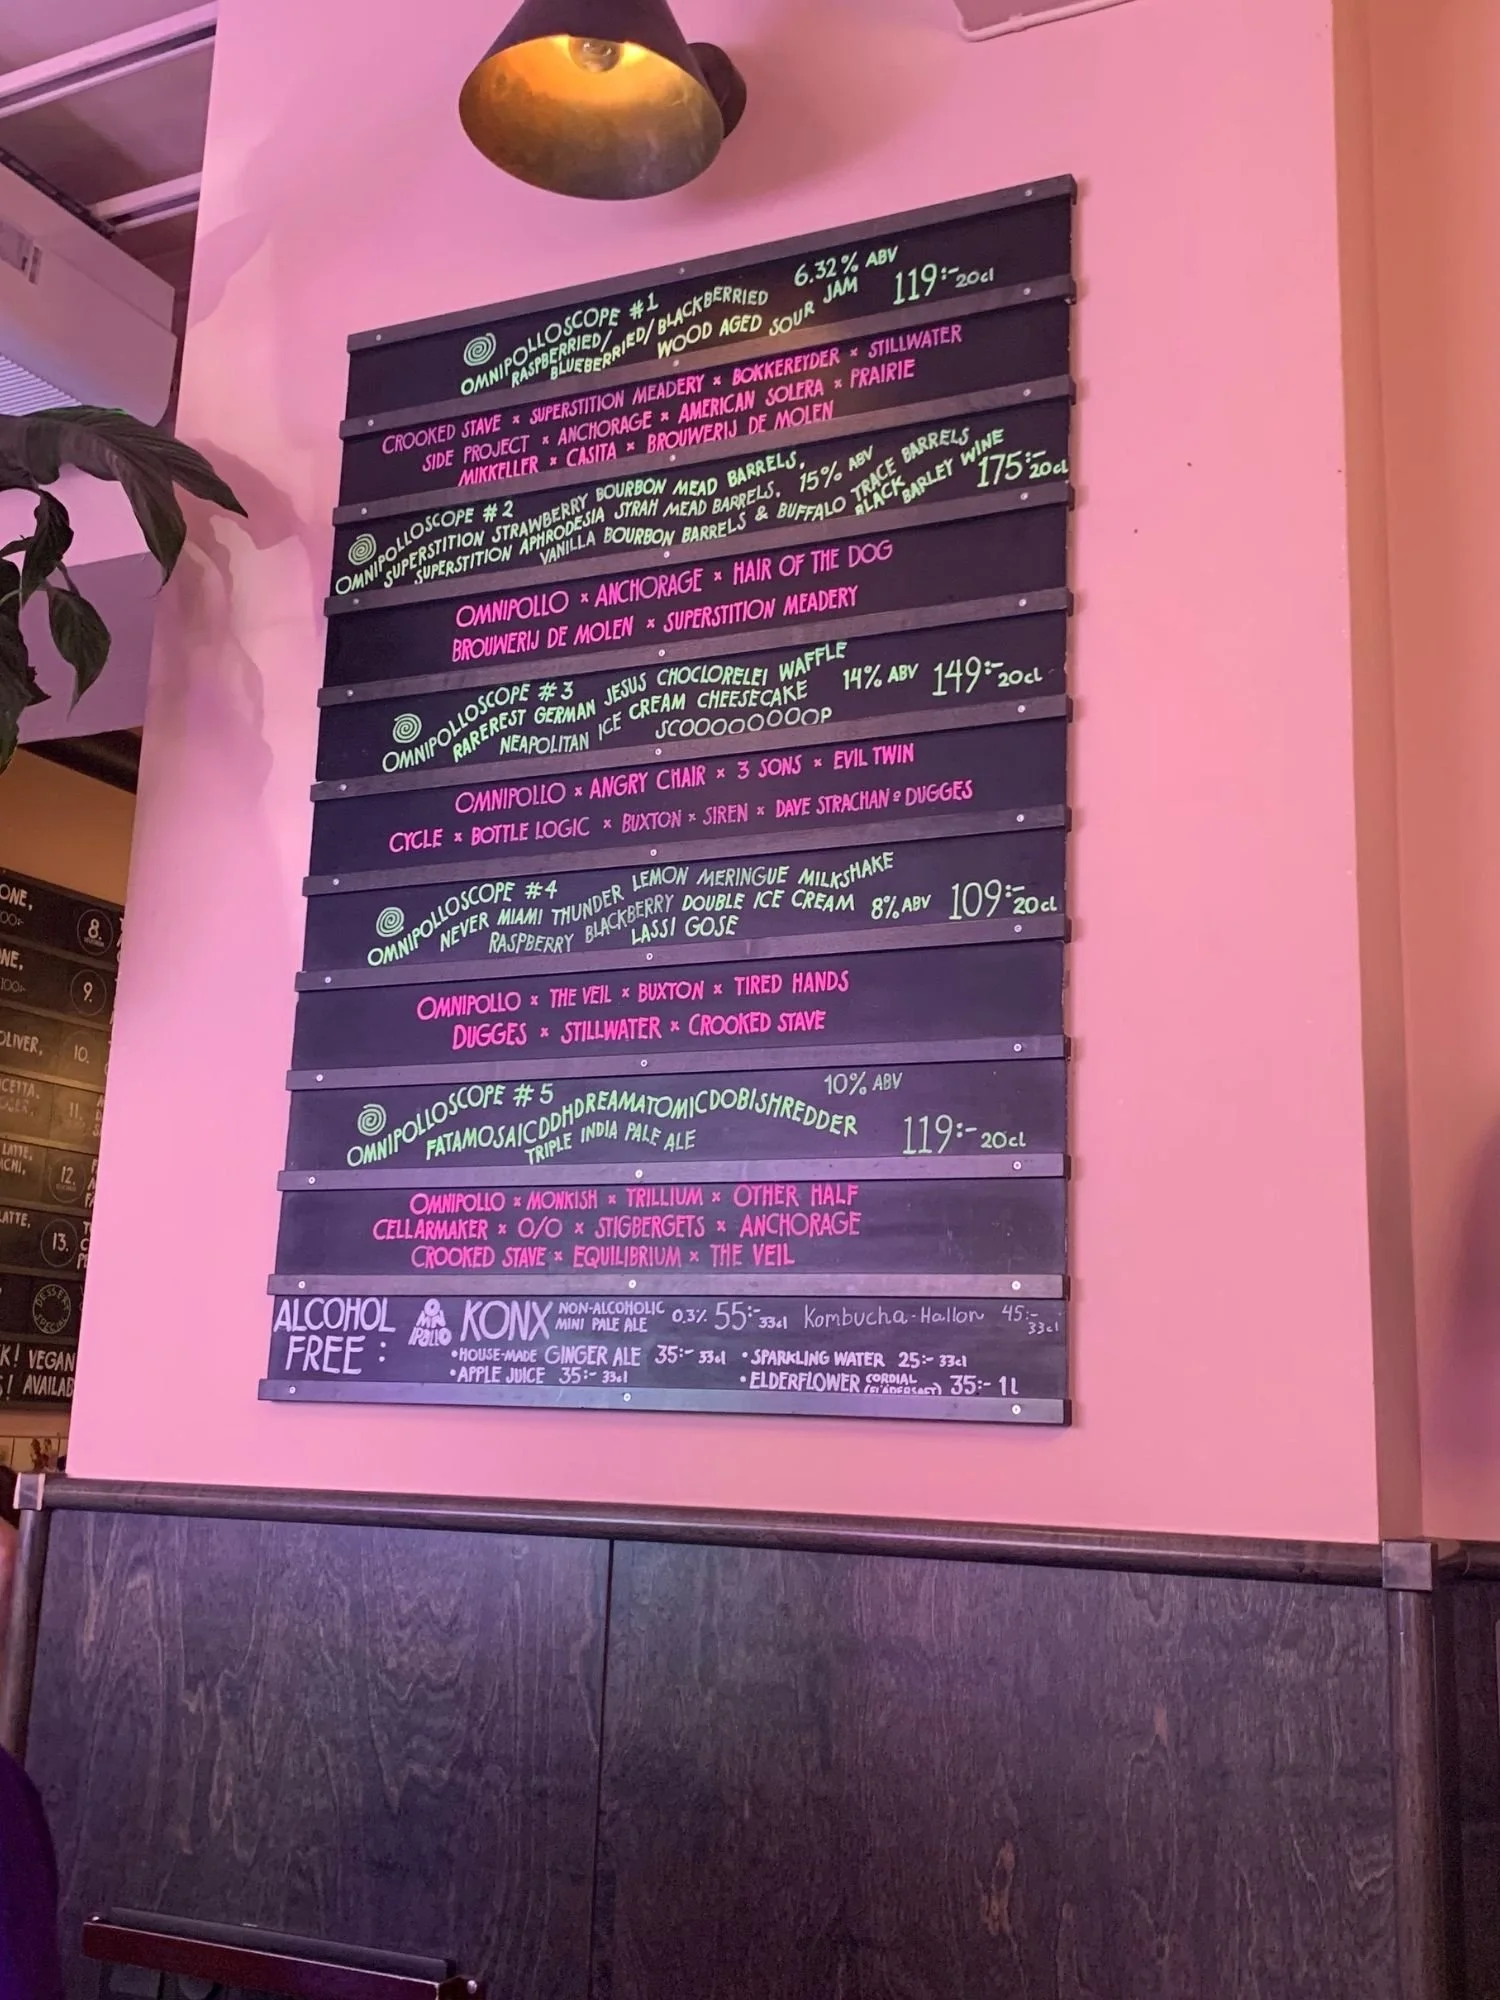 OMNIPOLLOSCOPE #1
6.32% ABV
RASPBERRIED/
BLUEBERRIED/BLACKBERRIED
WOOD AGED SOUR JAM
119:- 20cl
CROOKED STAVE × SUPERSTITION MEADERY × BOKKEREYDER × STILLWATER
SIDE PROJECT × ANCHORAGE × AMERICAN SOLERA × PRAIRIE
MIKKELLER × CASITA × BROUWERIJ DE MOLEN
OMNIPOLLOSCOPE #2
SUPERSTITION STRAWBERRY BOURBON MEAD BARRELS,
SUPERSTITION APHRODESIA SYRAH MEAD BARRELS,
15% ABV
VANILLA BOURBON BARRELS & BUFFALO TRACE BARRELS
BLACK BARLEY WINE
175:- 20cl
OMNIPOLLO × ANCHORAGE × HAIR OF THE DOG
BROUWERIJ DE MOLEN × SUPERSTITION MEADERY
OMNIPOLLOSCOPE #3
RAREREST GERMAN JESUS CHOCLORELEI WAFFLE
NEAPOLITAN ICE CREAM CHEESECAKE
SCOOOOOOOOP
14% ABV 149:- 20cl
OMNIPOLLO × ANGRY CHAIR × 3 SONS × EVIL TWIN
CYCLE × BOTTLE LOGIC × BUXTON × SIREN × DAVE STRACHAN º DUGGES
OMNIPOLLOSCOPE #4
NEVER MIAMI THUNDER LEMON MERINGUE MILKSHAKE
RASPBERRY BLACKBERRY DOUBLE ICE CREAM
LASSI GOSE
8% ABV 109:- 20cl
OMNIPOLLO × THE VEIL × BUXTON × TIRED HANDS
DUGGES × STILLWATER × CROOKED STAVE
OMNIPOLLOSCOPE #5
10% ABV
FATAMOSAICDDHDREAMATOMICDOBISHREDDER
TRIPLE INDIA PALE ALE
119:- 20cl
OMNIPOLLO × MONKISH × TRILLIUM × OTHER HALF
CELLARMAKER × O/O × STIGBERGETS × ANCHORAGE
CROOKED STAVE × EQUILIBRIUM × THE VEIL
ALCOHOL FREE:
OMNIPOLLO KONX NON-ALCOHOLIC MINI PALE ALE 0,3% 55:- 33cl Kombucha-Hallon 45:- 33cl
•HOUSE-MADE GINGER ALE 35:- 33cl •SPARKLING WATER 25:- 33cl
•APPLE JUICE 35:- 33cl •ELDERFLOWER CORDIAL (FLÄDERSAFT) 35:- 1L
ONE,
8.
9.
OLIVER,
10.
11.
LATTE,
12.
LATTE,
13.
DESSERT SPECIAL
K! VEGAN
! AVAILAB